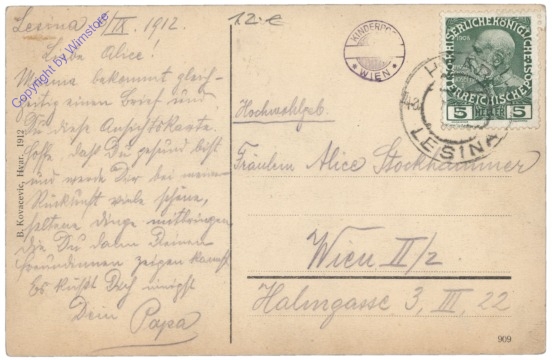 Lesina /IX. 1912.
Liebe Alice!
Mama bekommt gleich-
zeitig einen Brief und
Du diese Ansichtskarte.
Hoffe, daß Du gesund bist
und werde Dir bei meiner
Rückkunft viele schöne,
seltene Dinge mitbringen
die Du dann Deinen
Freundinnen zeigen kannst
Es küßt Dich innigst
Dein Papa
B. Kovacevic, Hvar, 1912
Copyright by Wimstore
12.-€
KINDERPO
WIEN
KAISERLICHE KÖNIGLICHE
ÖSTERREICHISCHE POST
5 HELLER 5
LESINA
Hochwohlgeb.
Fräulein Alice Stockhammer
Wien II/2
Halmgasse 3, III, 22
909